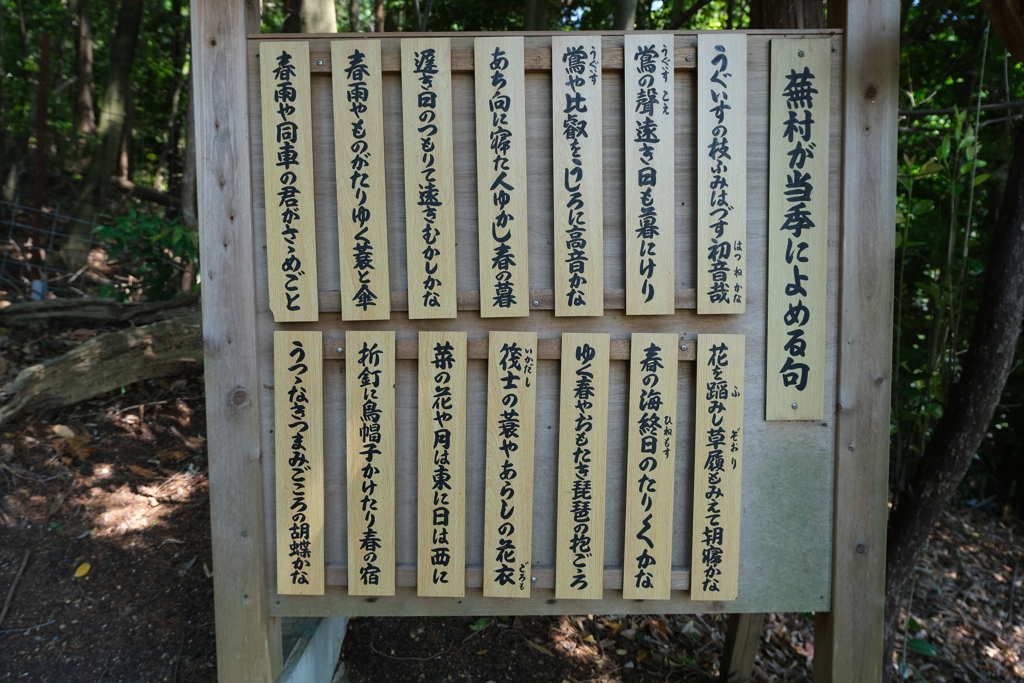 蕪村が当季によめる句
うぐいすの枝ふみはづす初音哉
はつねかな
鶯の聲遠き日も暮にけり
うぐいす こえ
鶯や比叡をうしろに高音かな
うぐいす
あち向に寝た人ゆかし春の暮
遅き日のつもりて遠きむかしかな
春雨やものがたりゆく蓑と傘
春雨や同車の君がさゝめごと
花を踏みし草履もみえて朝寝かな
ふ ぞおり
春の海終日のたりくかな
ひねもす
ゆく春やおもたき琵琶の抱ごゝろ
筏士の蓑やあらしの花衣
いかだし ごろも
菜の花や月は東に日は西に
折釘に烏帽子かけたり春の宿
うつゝなきつまみごころの胡蝶かな